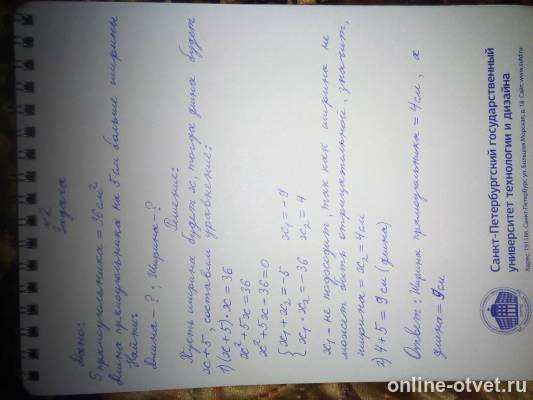 №2
Задача
Дано:
S прямоугольника = 36 см²
Длина прямоугольника на 5 см больше ширины
Найти:
Длина - ? ; Ширина - ?
Решение:
Пусть ширина будет x, тогда длина будет
x+5, составим уравнение:
1) (x+5)·x=36
x²+5x=36
x²+5x-36=0
{x₁+x₂=-5 x₁=-9
{x₁·x₂=-36 x₂=4
x₁ - не подходит, так как ширина не
может быть отрицательной, значит,
ширина = x₂ = 4см
2) 4+5=9см (длина)
Ответ: Ширина прямоугольника = 4см, а
длина = 9см
Санкт-Петербургский государственный
университет технологии и дизайна
Адрес: 191186, Санкт-Петербург, ул. Большая Морская, д. 18 Сайт: www.sutd.ru
online-otvet.ru